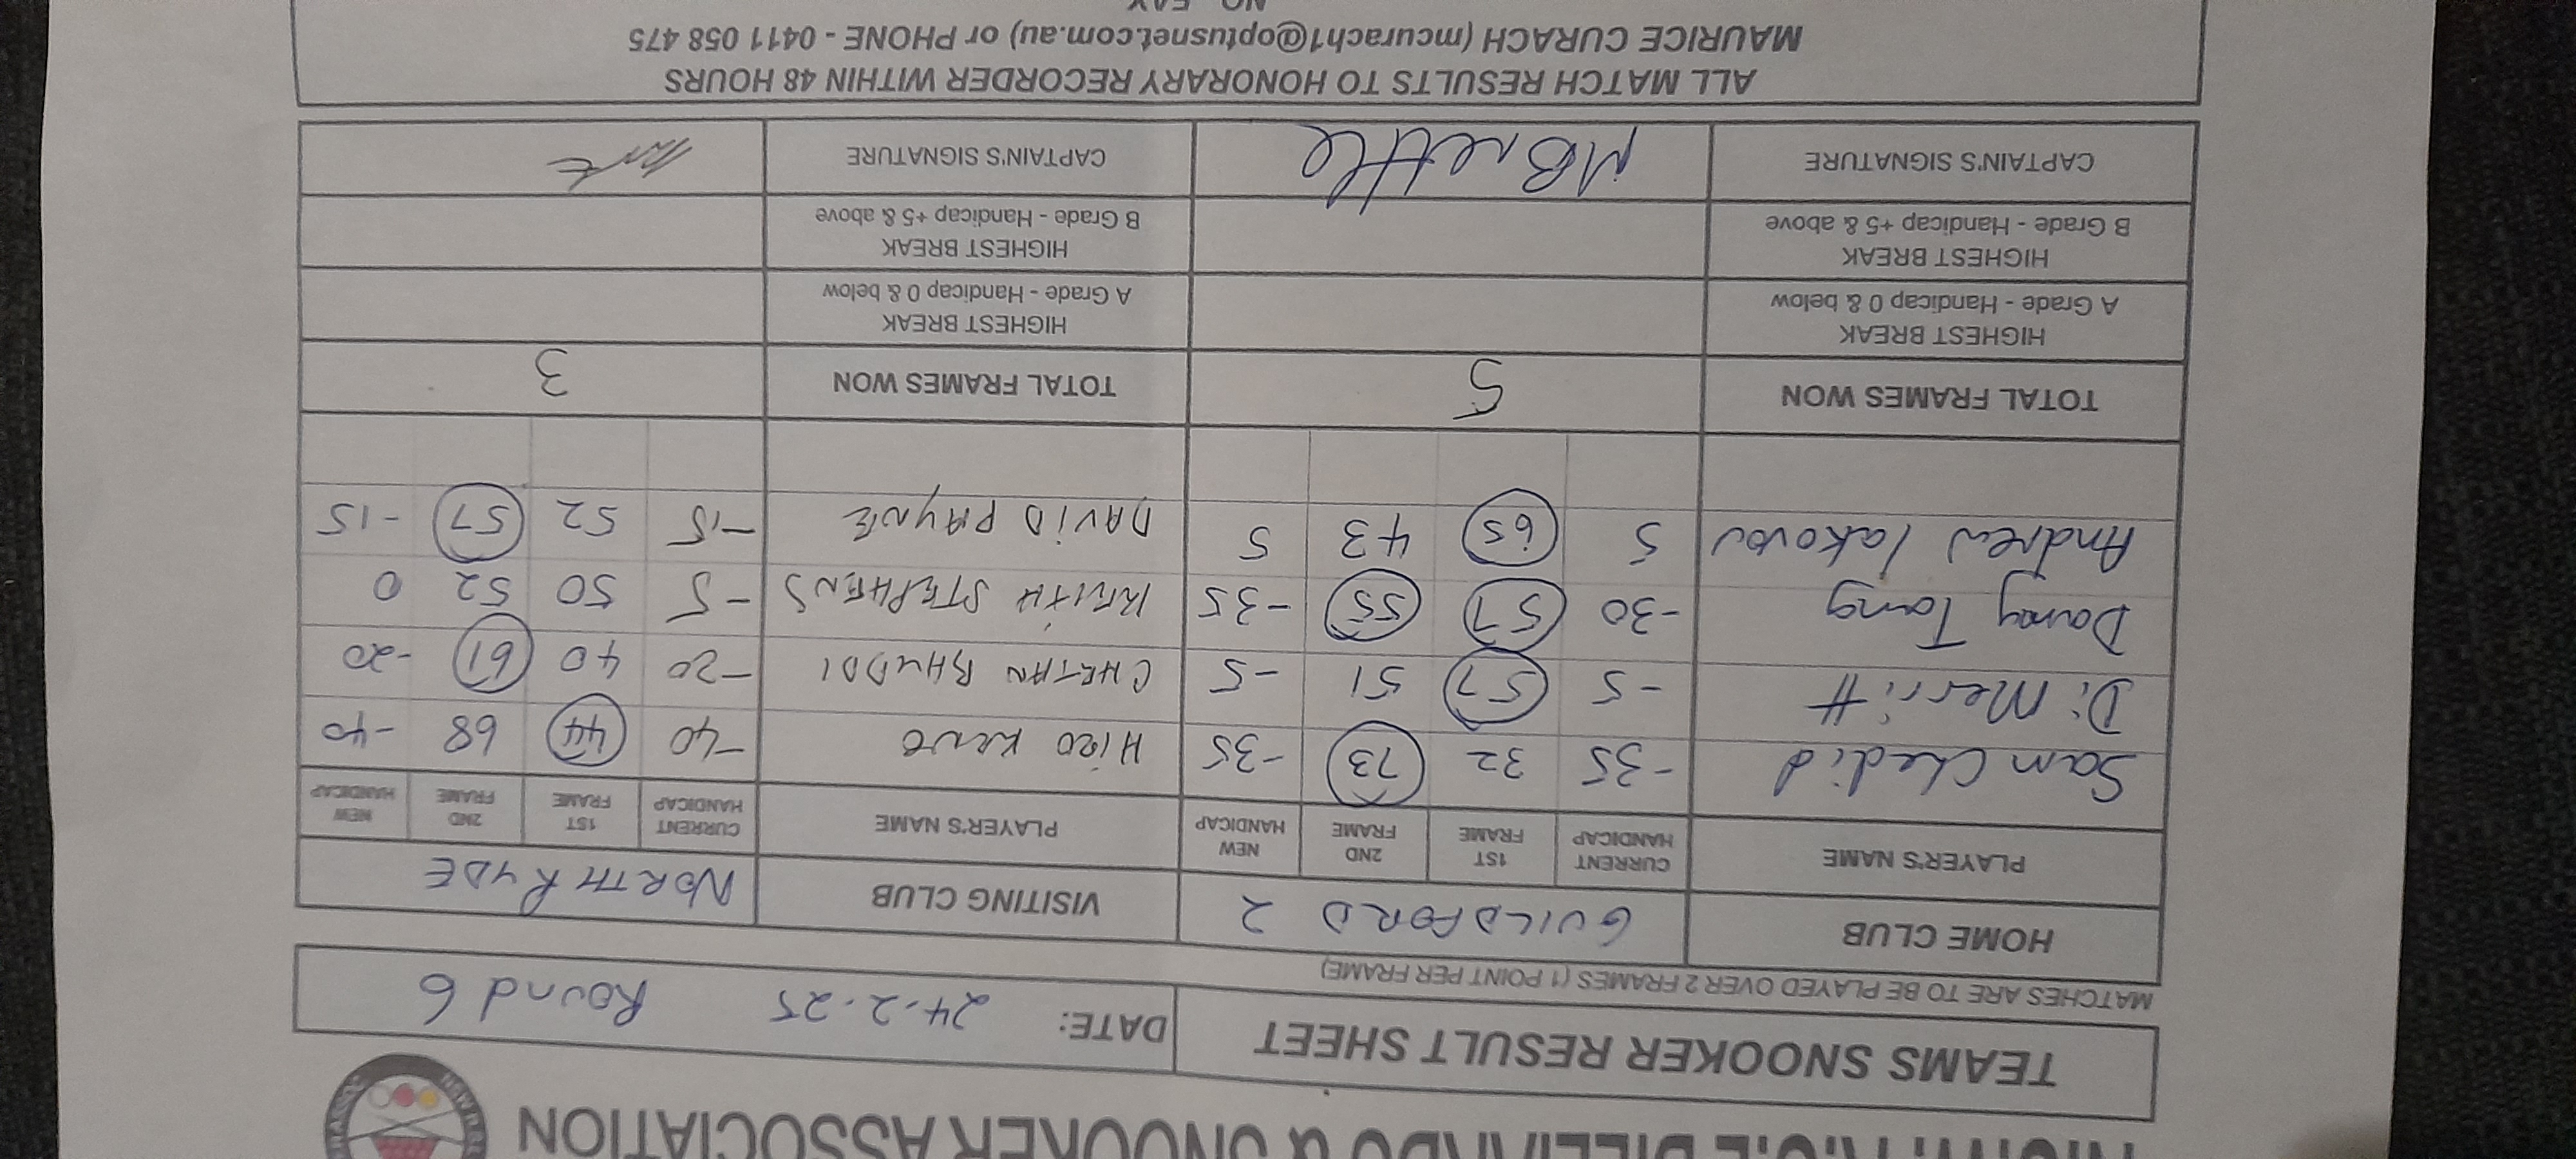 BILLIARDS & SNOOKER ASSOCIATION
TEAMS SNOOKER RESULT SHEET DATE: 24-2-25 Round 6
MATCHES ARE TO BE PLAYED OVER 2 FRAMES (1 POINT PER FRAME)
HOME CLUB GUILDFORD 2 VISITING CLUB NORTH RYDE
PLAYER'S NAME CURRENT HANDICAP 1ST FRAME 2ND FRAME NEW HANDICAP PLAYER'S NAME CURRENT HANDICAP 1ST FRAME 2ND FRAME NEW HANDICAP
Sam Chedid -35 32 73 -35 HIRO KENO -40 44 68 -40
Di Merritt -5 57 51 -5 CHETAN BHUDDI -20 40 61 -20
Danny Tang -30 57 55 -35 KEITH STEPHENS -5 50 52 0
Andrew Iakovou 5 65 43 5 DAVID PAYNE -15 52 57 -15
TOTAL FRAMES WON 5 TOTAL FRAMES WON 3
HIGHEST BREAK HIGHEST BREAK
A Grade - Handicap 0 & below A Grade - Handicap 0 & below
HIGHEST BREAK HIGHEST BREAK
B Grade - Handicap +5 & above B Grade - Handicap +5 & above
CAPTAIN'S SIGNATURE MBrettle CAPTAIN'S SIGNATURE
ALL MATCH RESULTS TO HONORARY RECORDER WITHIN 48 HOURS
MAURICE CURACH (mcurach1@optusnet.com.au) or PHONE - 0411 058 475
NO FAX